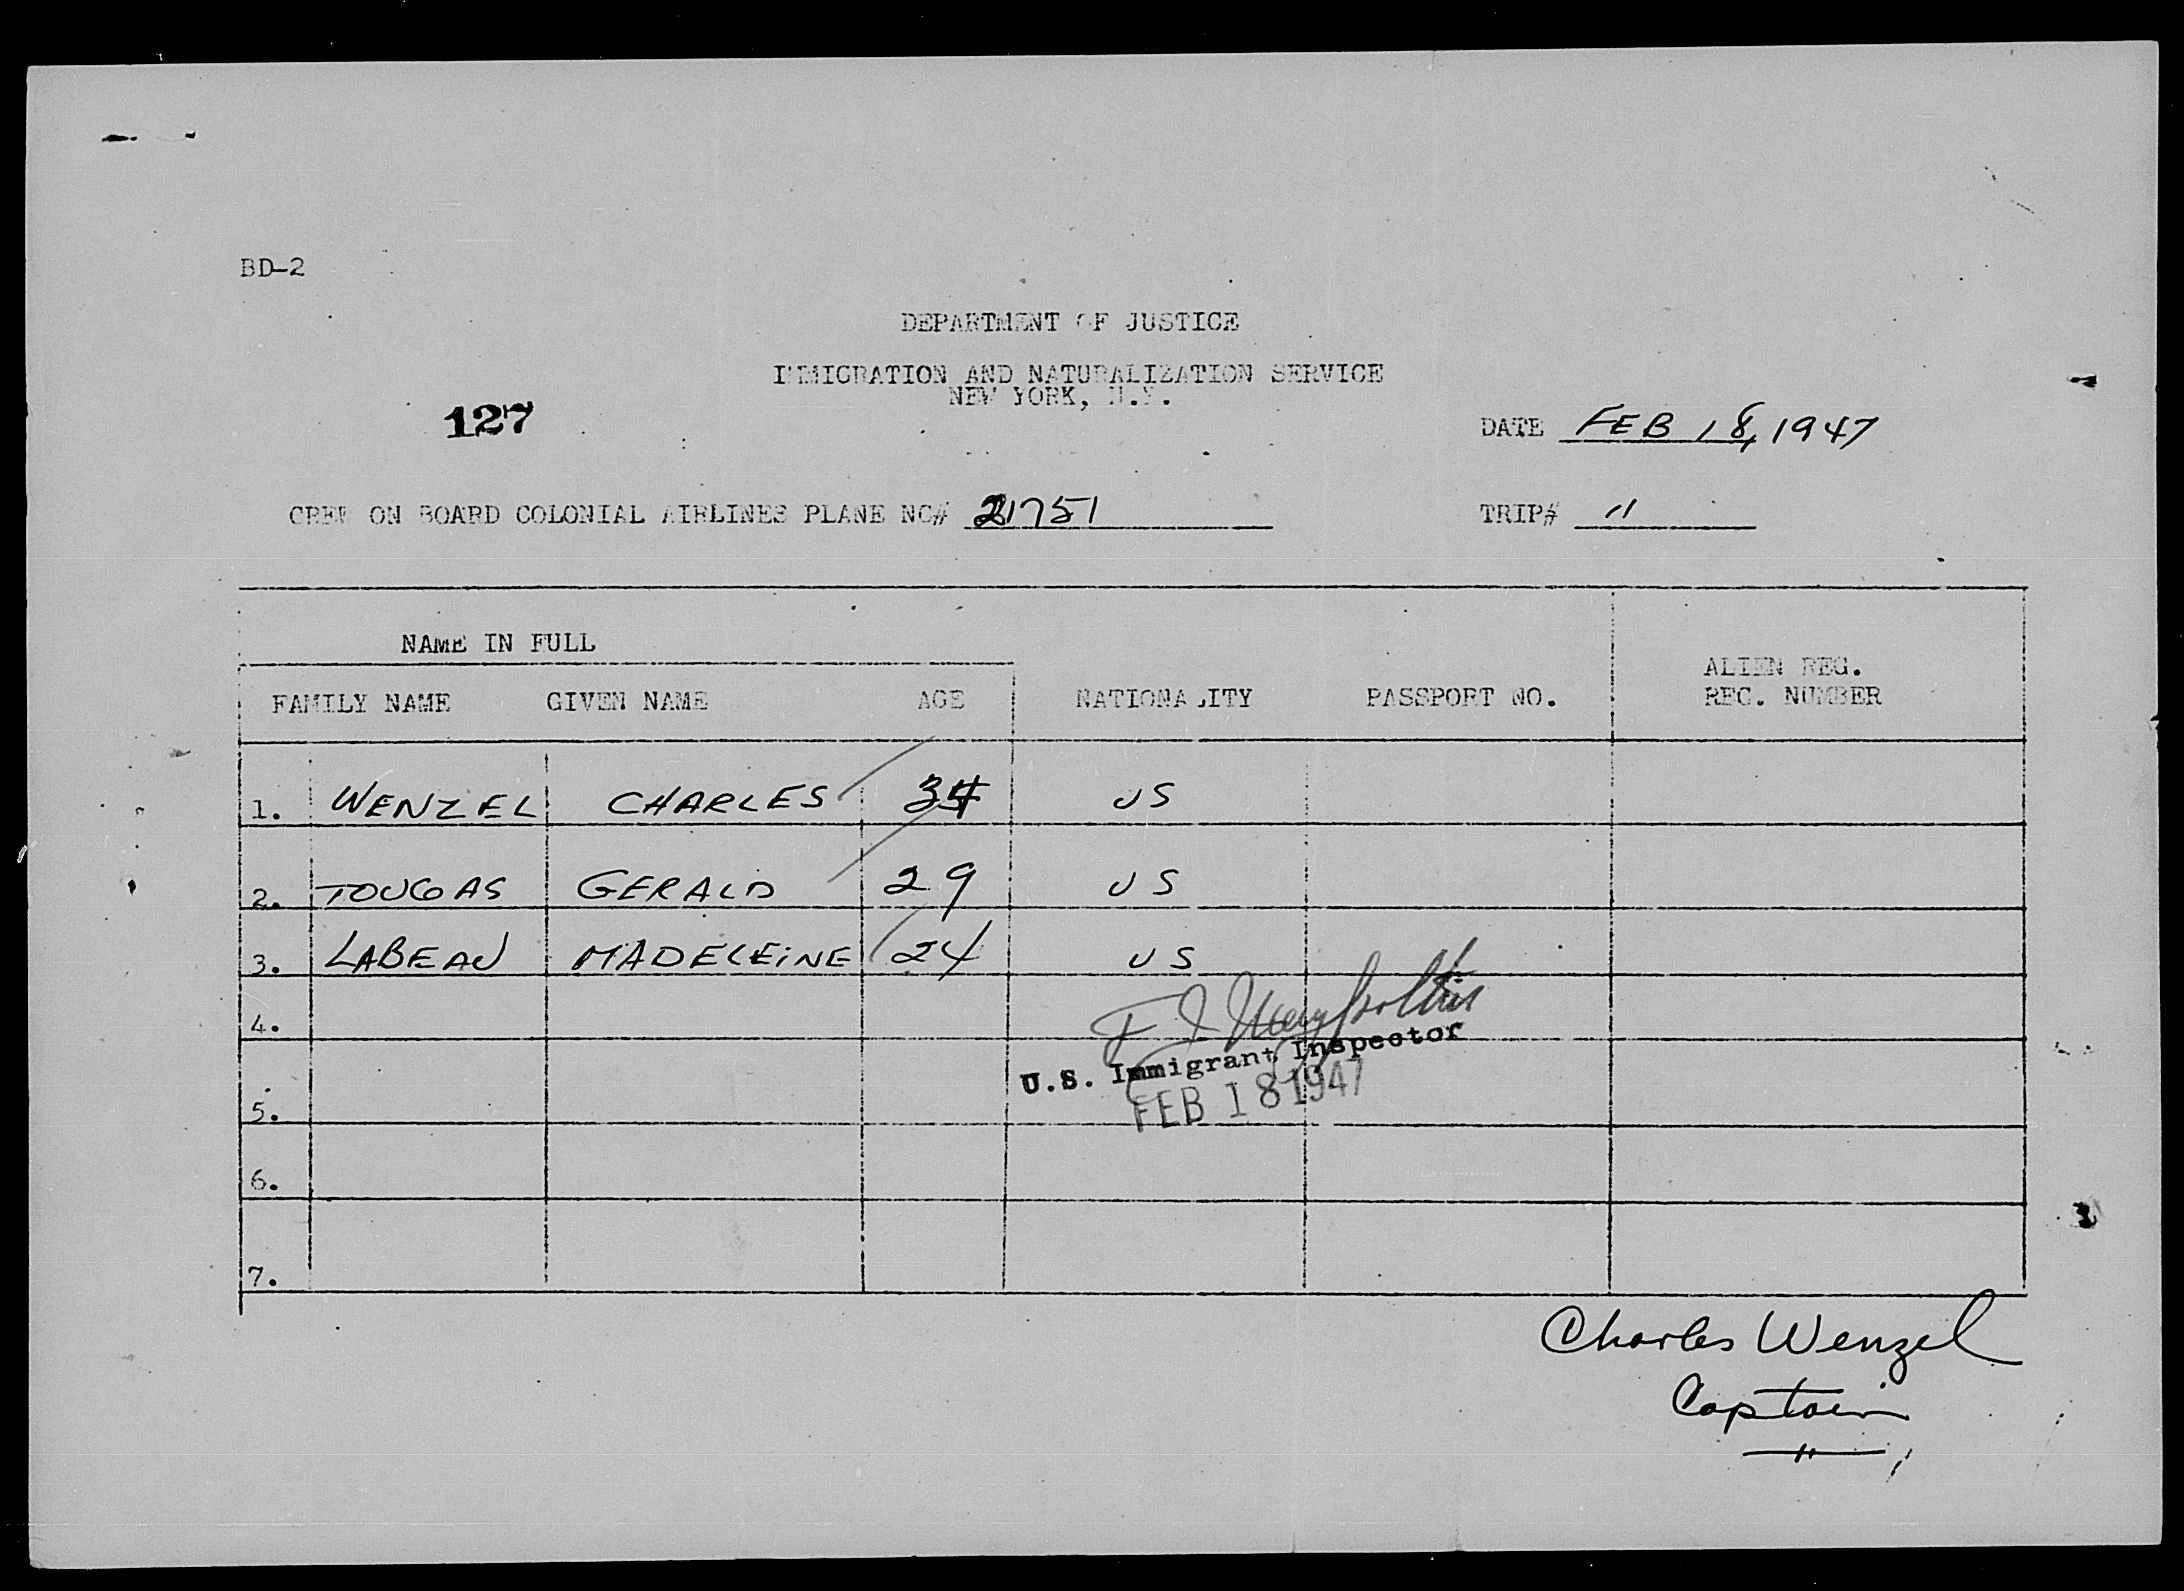 BD-2
DEPARTMENT OF JUSTICE
IMMIGRATION AND NATURALIZATION SERVICE
NEW YORK, N.Y.
127
DATE FEB 18, 1947
CREW ON BOARD COLONIAL AIRLINES PLANE NC# 21751
TRIP# 11
NAME IN FULL
FAMILY NAME GIVEN NAME AGE NATIONALITY PASSPORT NO. ALIEN REG.
REC. NUMBER
1. WENZEL CHARLES 34 US
2. TOUGAS GERALD 29 US
3. LABEAU MADELEINE 24 US
4.
U.S. Immigrant Inspector
FEB 18 1947
5.
6.
7.
Charles Wenzel
Captain